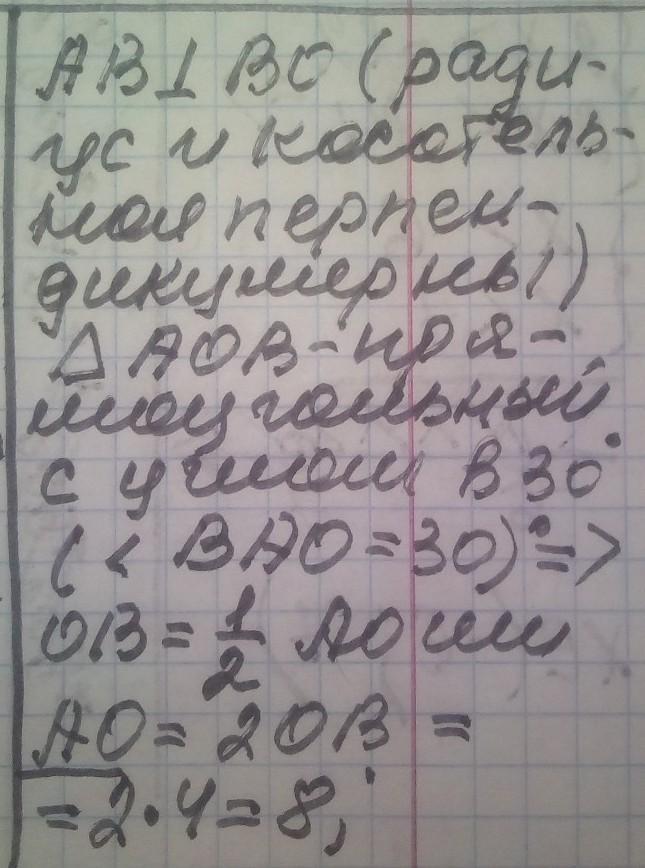 AB⊥BO (ради-
ус и касатель-
ная перпен-
дикулярны)
△AOB-пря-
моугольный
с углом в 30°
(< BAO=30°)=>
OB = 1/2 AO или
AO = 2OB =
= 2·4=8;